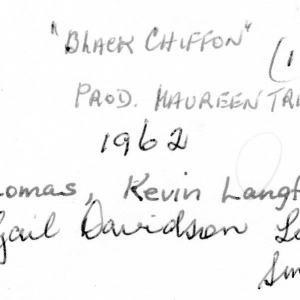 "BLACK CHIFFON" (1
PROD. MAUREEN TR
1962
omas, Kevin Langf
gail Davidson Le